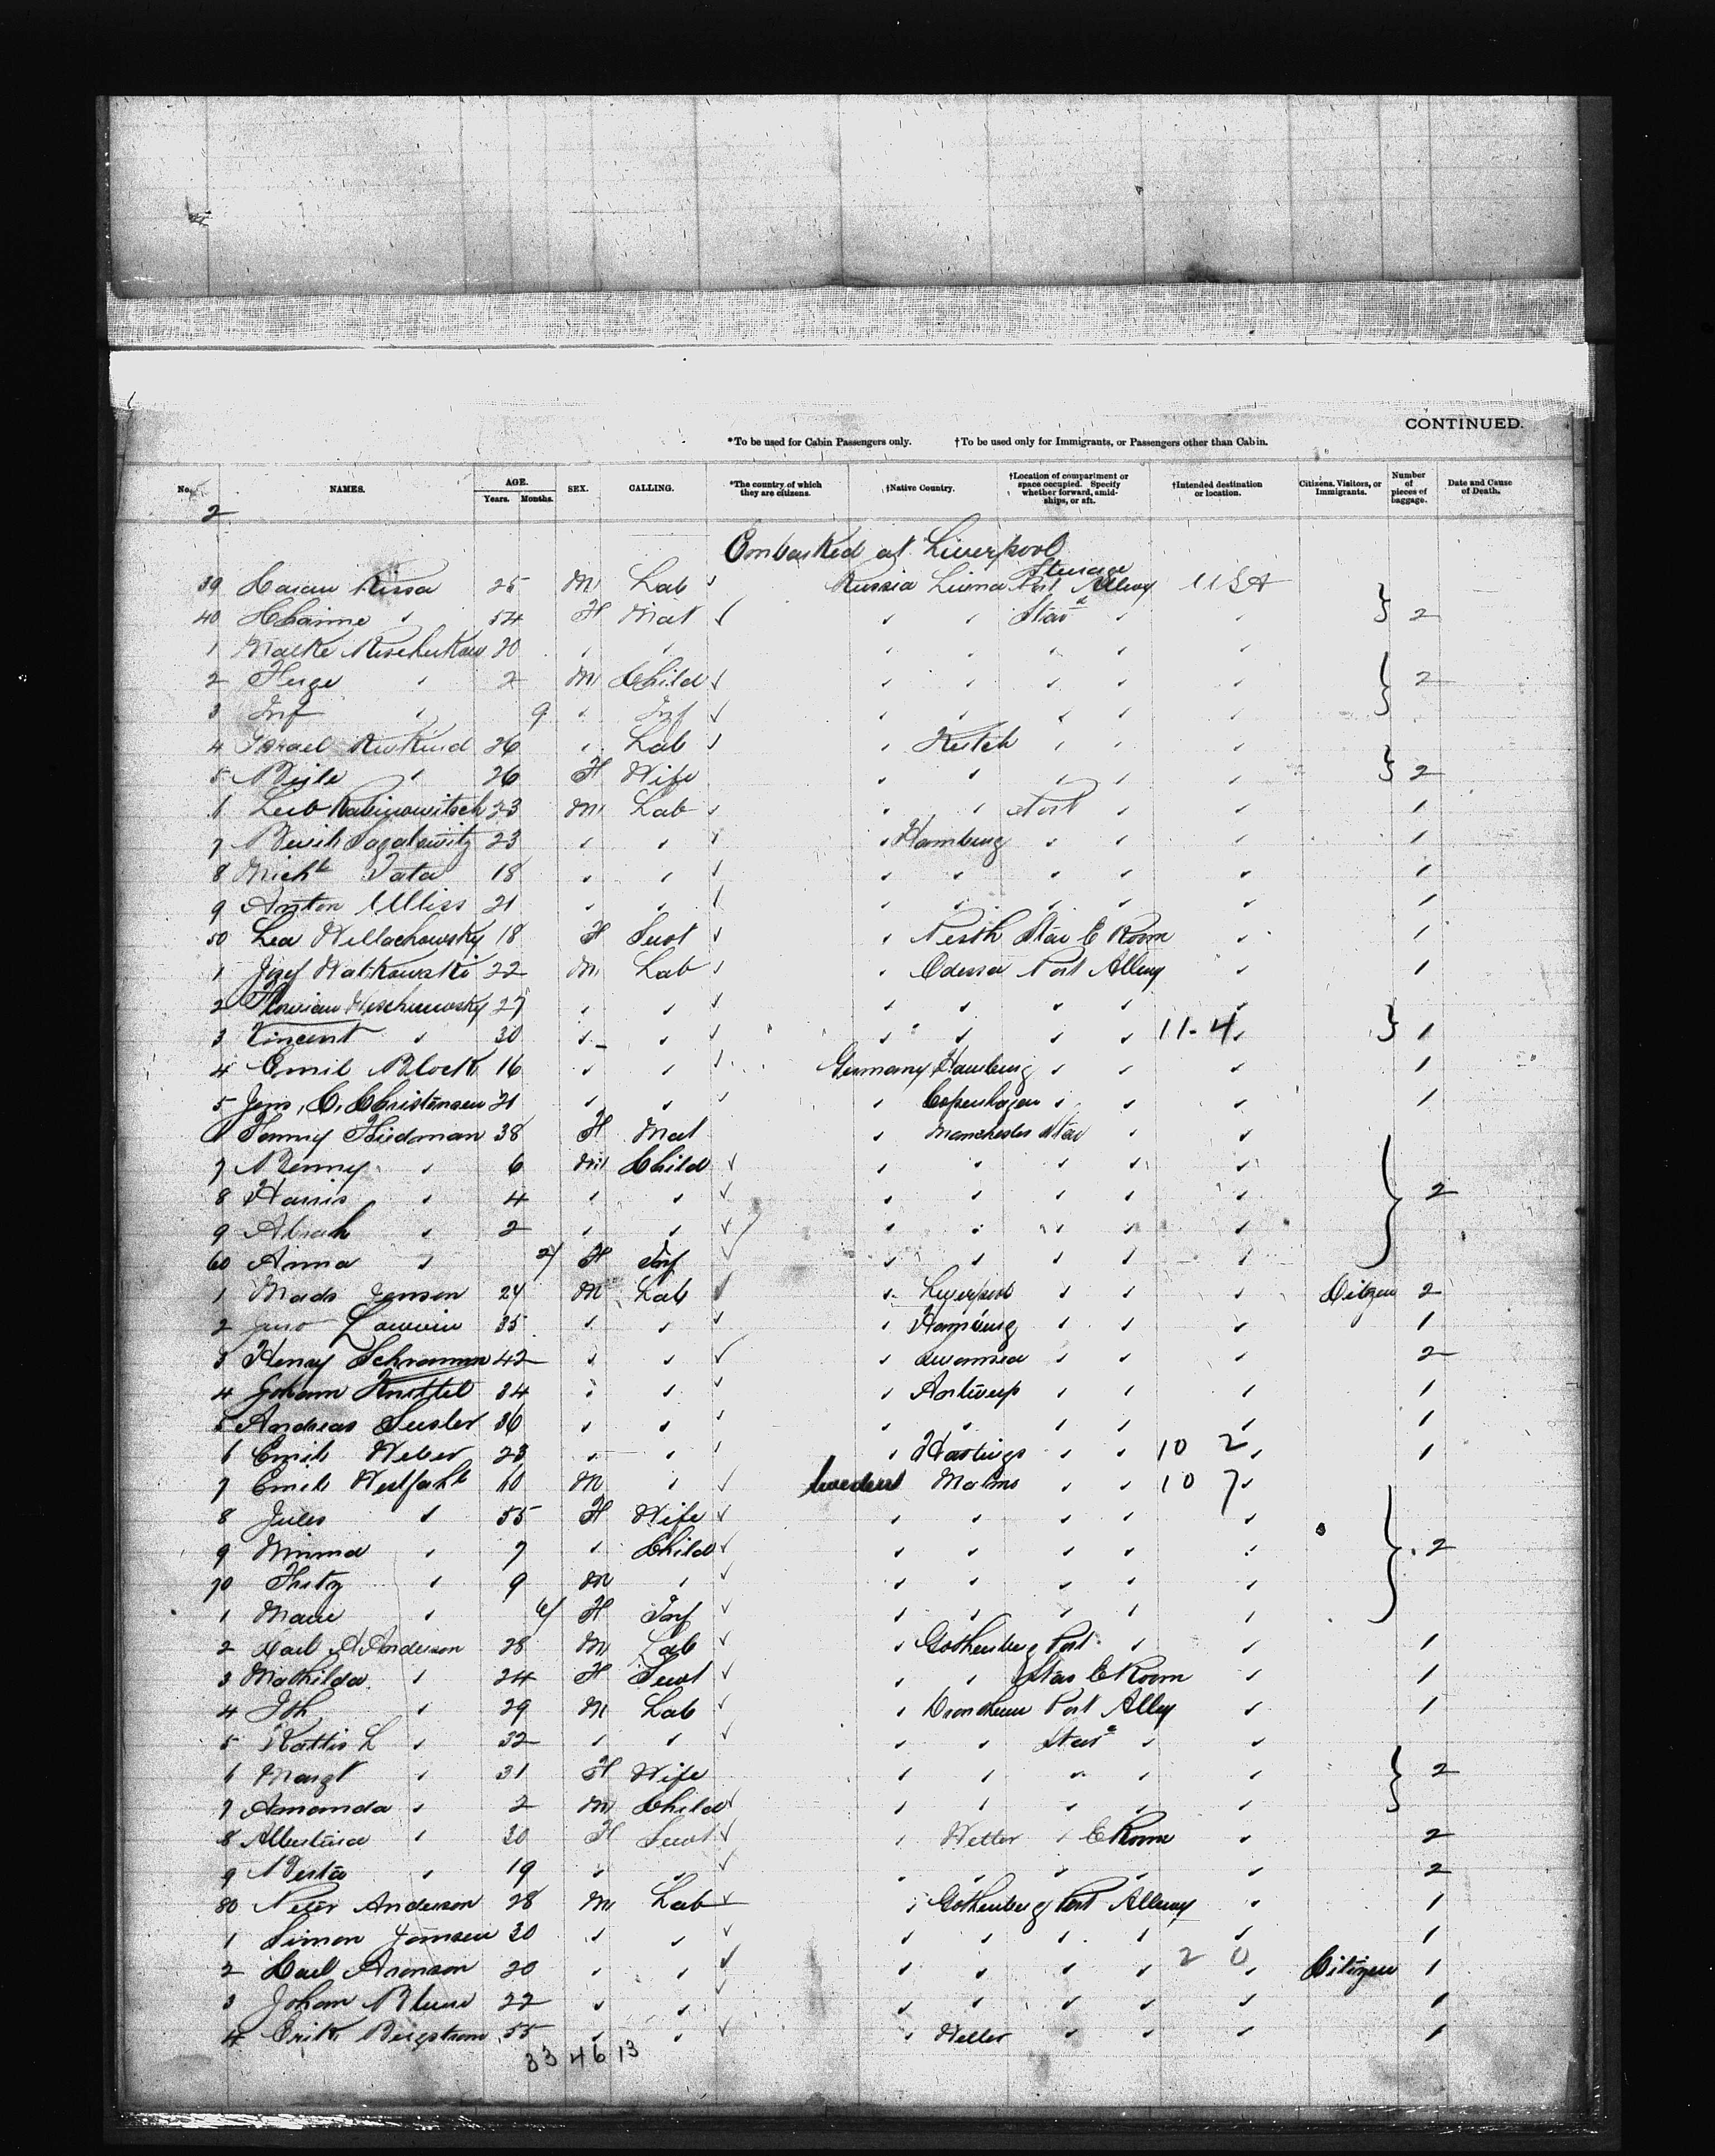 CONTINUED.
*To be used for Cabin Passengers only. †To be used only for Immigrants, or Passengers other than Cabin.
No. NAMES. AGE. Years. Months. SEX. CALLING. *The country of which they are citizens. †Native Country. †Location of compartment or space occupied. Specify whether forward, amidships, or aft. †Intended destination or location. Citizens, Visitors, or Immigrants. Number of pieces of baggage. Date and Cause of Death.
2
Embarked at Liverpool
Steerage
39 25 M Lab Russia Port Alleway USA
40 54 F Mat Star 2
1 Malke 20
2 2 M Child 2
3 Inf 9 Inf
4 Israel 26 Lab
5 Beile 26 F Wife 2
6 Leib Rabinowitsch 23 M Lab Port 1
7 23 Hamburg 1
8 Michl Tata 18 1
9 Anton 21 1
50 Lea Willachowsky 18 F Servt Perth Star E Room 1
1 Jozef Watkowski 22 M Lab Odessa Port Alleway 1
2 Florian 27
3 Vincent 30 11-4 1
4 Emil Block 16 Germany Hamburg 1
5 Jens C. Christensen 21 Copenhagen 1
6 Fanny Friedman 38 F Mat Manchester Star
7 Benny 6 M Child
8 Harris 4 2
9 Abrah 2
60 Anna F Inf
1 Mads Jensen 24 M Lab Liverpool Citizen 2
2 35 Hamburg 1
3 Henry Schramm 42 Swansea 2
4 Johann Knittel 34 Antwerp 1
5 Andreas 36 1
6 Emil Weber 23 Hastings 10 2 1
7 Emil Westfahl 60 M Malmo 10 7
8 Jules 55 F Wife
9 Minna 7 Child 2
70 Fritz 9 M
1 Marie 6/ F Inf
2 Carl A Anderson 28 M Lab Gothenburg Port 1
3 Mathilda 24 F Servt Star E Room 1
4 Joh 29 M Lab Port Alley 1
5 32 Star
6 Margt 31 F Wife 2
7 Amanda 2 M Child
8 Albertina 30 F Servt E Room 2
9 Berta 19 2
80 Peter Anderson 28 M Lab Gothenburg Port Alleway 1
1 Simon 30 1
2 Carl Aronson 20 2 0 Citizen 1
3 Johan 22 1
4 Erik Bergstrom 55 1
33 46 13